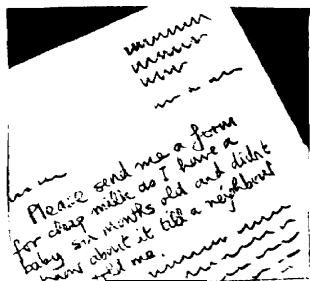 Please send me a form
for cheap milk as I have a
baby six months old and didnt
know about it till a neighbour
told me.